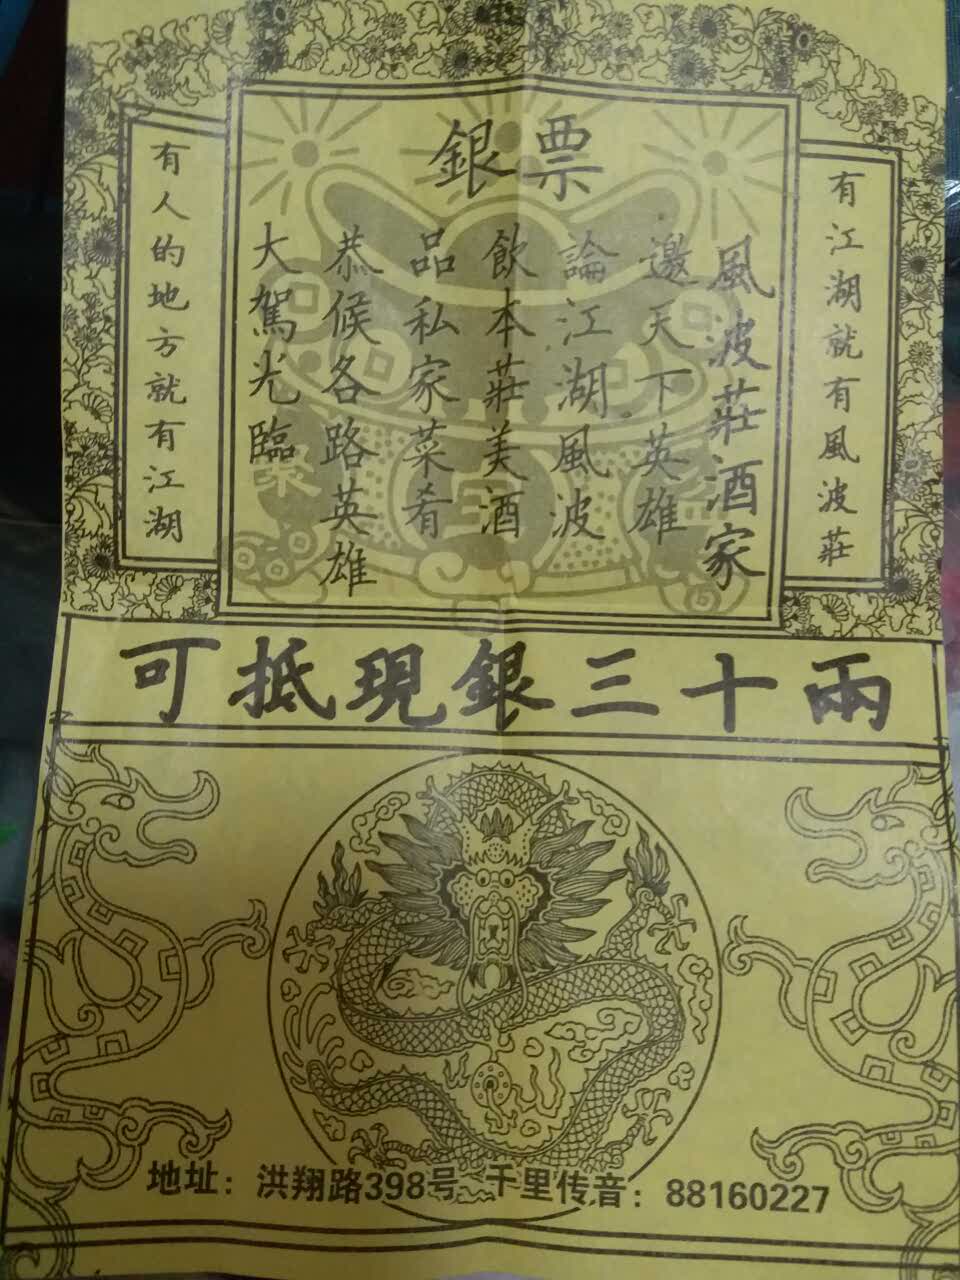 銀票
有江湖就有風波莊
風波莊酒家
邀天下英雄
論江湖風波
飲本莊美酒
品私家菜肴
恭候各路英雄
大駕光臨
有人的地方就有江湖
可抵現銀三十兩
地址：洪翔路398号 千里传音：88160227